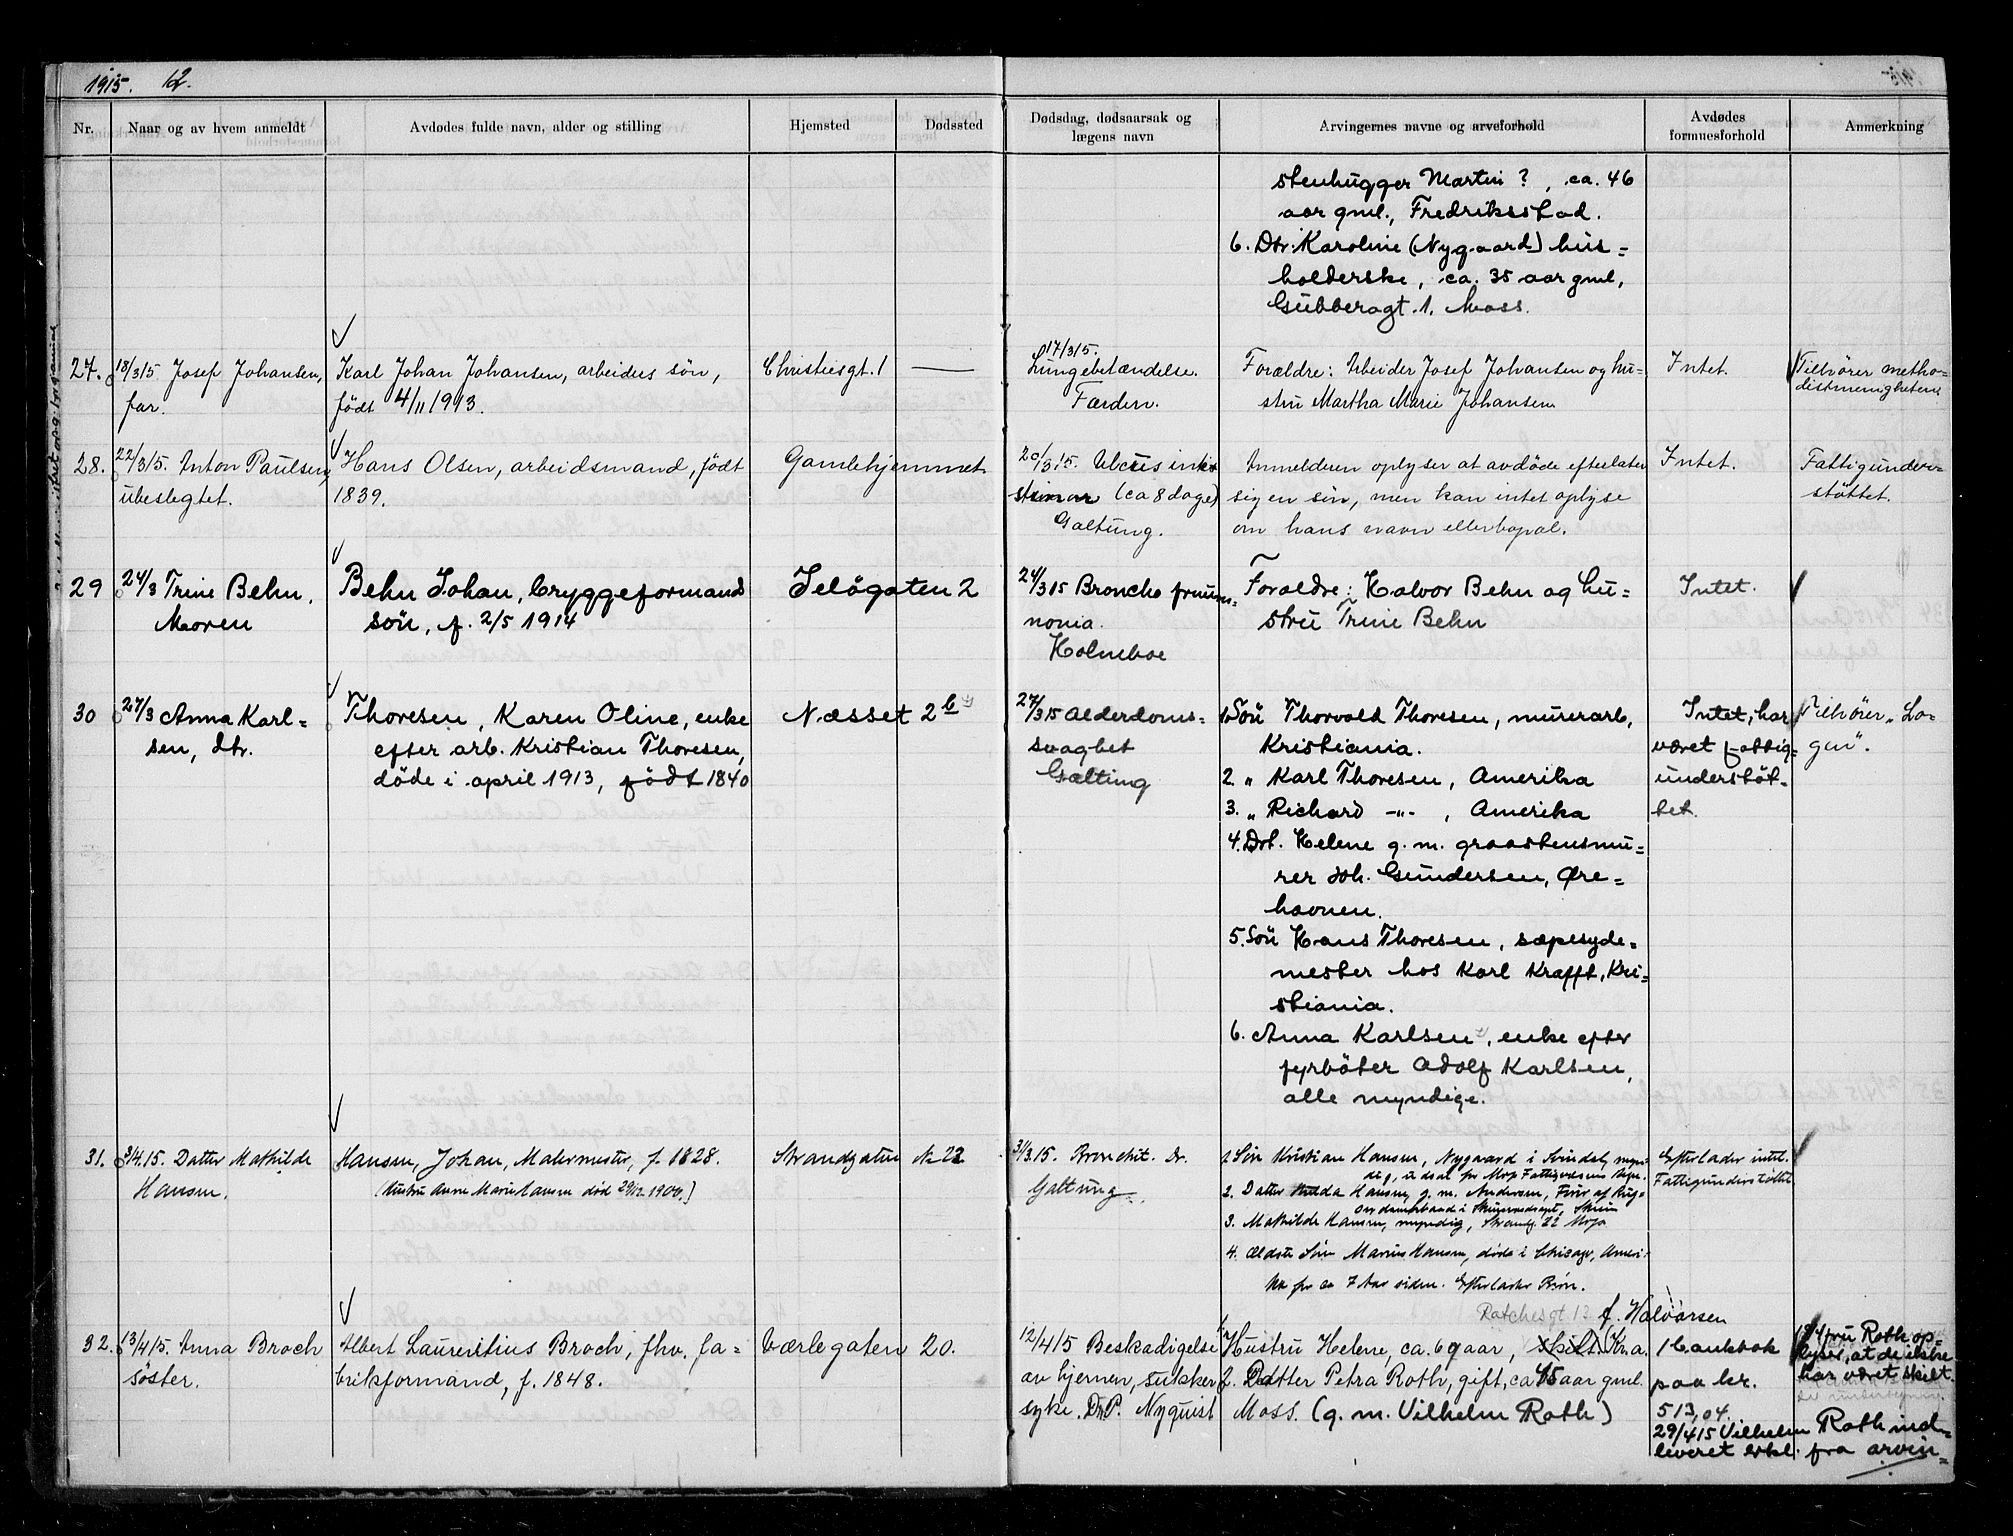 1915. 12.
Nr. Naar og av hvem anmeldt Avdødes fulde navn, alder og stilling Hjemsted Dødssted Dødsdag, dødsaarsak og lægens navn Arvingernes navne og arveforhold Avdødes formuesforhold Anmerkning
stenhugger Martin ?, ca. 46
aar gml., Fredriksstad.
6. Dtr. Karoline (Nygaard) hus=
holderske, ca. 35 aar gml,
Gubberogt. 1. Moss.
27. 18/3 15 Josef Johansen, far.
Karl Johan Johansen, arbeiders søn,
født 4/11 1913.
Christiesgt. 1 —
17/3 15.
Lungebetændelse.
Færden.
Forældre: Arbeider Josef Johansen og hu=
stru Martha Marie Johansen
Intet.
Tilhører metho=
distmenigheten
28. 22/3 15. Anton Paulsen,
ubeslegtet.
Hans Olsen, arbeidsmand, født
1839.
Gamlehjemmet
20/3 15. Ulcus
(ca 8 dage)
Galtung.
Anmelderen oplyser at avdøde efterlater
sig en søn, men kan intet oplyse
om hans navn eller bopæl.
Intet.
Fattigunder=
støttet.
29 24/3 Trine Behn,
Moren
Behn Johan, bryggeformands
søn, f. 2/5 1914
Jeløgaten 2
24/3 15 Broncho pneum=
nonia.
Holmboe
Foreldre: Halvor Behn og hu=
stru Trine Behn
Intet.
30 27/3 Anna Karl=
sen, dtr.
Thoresen, Karen Oline, enke
efter arb. Kristian Thoresen,
døde i april 1913, født 1840
Næsset 2b
27/3 15 Alderdoms=
svaghet
Galtung
1. Søn Thorvald Thoresen, murerarb,
Kristiania.
2. „ Karl Thoresen, Amerika
3. „ Richard -„- , Amerika
4. Dtr. Helene g. m. graastensmu=
rer Joh. Gundersen, Øre=
havnen.
5. Søn Hans Thoresen, sæpesyde=
mester hos Karl Krafft, Kri=
stiania.
6. Anna Karlsen, enke efter
fyrbøter Adolf Karlsen,
alle myndige.
Intet, har
været fattig=
understøt=
tet.
Tilhører „Lo=
gen“.
31. 3/4 15. Datter Mathilde
Hansen.
Hansen, Johan, Malermester, f. 1828.
(Hustru Anne Marie Hansen død 29/12 1900.)
Strandgaten Nr 22
31/3 15. Bronchit. Dr.
Galtung.
1. Søn Kristian Hansen, Nygaard i Svindal, myn=
dig, utsat for Moss Fattigvæsens Regn.
2. Datter Hulda Hansen, g. m. Andersen,
3. Mathilde Hansen, myndig, Strandg. 22 Moss
4. Ældste Søn Marius Hansen, døde i Chicago, Ameri=
ka for ca 7 Aar siden. Efterlader Børn.
Efterlader intet.
Fattigunderstøttet
Ratchesgt 12 f. Halvorsen
32. 13/4 15. Anna Broch
søster.
Albert Laurentius Broch, fhv. fa=
brikformand, f. 1848.
Værlegaten 20.
12/4 15 Beskadigelse
av hjernen, sukker
syke. Dr. P. Nyquist
1. Hustru Helene, ca. 69 aar, skilt (Kr.a.
2. Datter Petra Roth, gift, ca 45 aar gml.
Moss. (g. m. Vilhelm Roth)
1 bankbok
paa kr.
513,04.
29/4 15 Vilhelm Roth ind=
leveret erkl. fra arvin=
19/4 fru Roth op=
lyser, at de ikke
har været skilt.